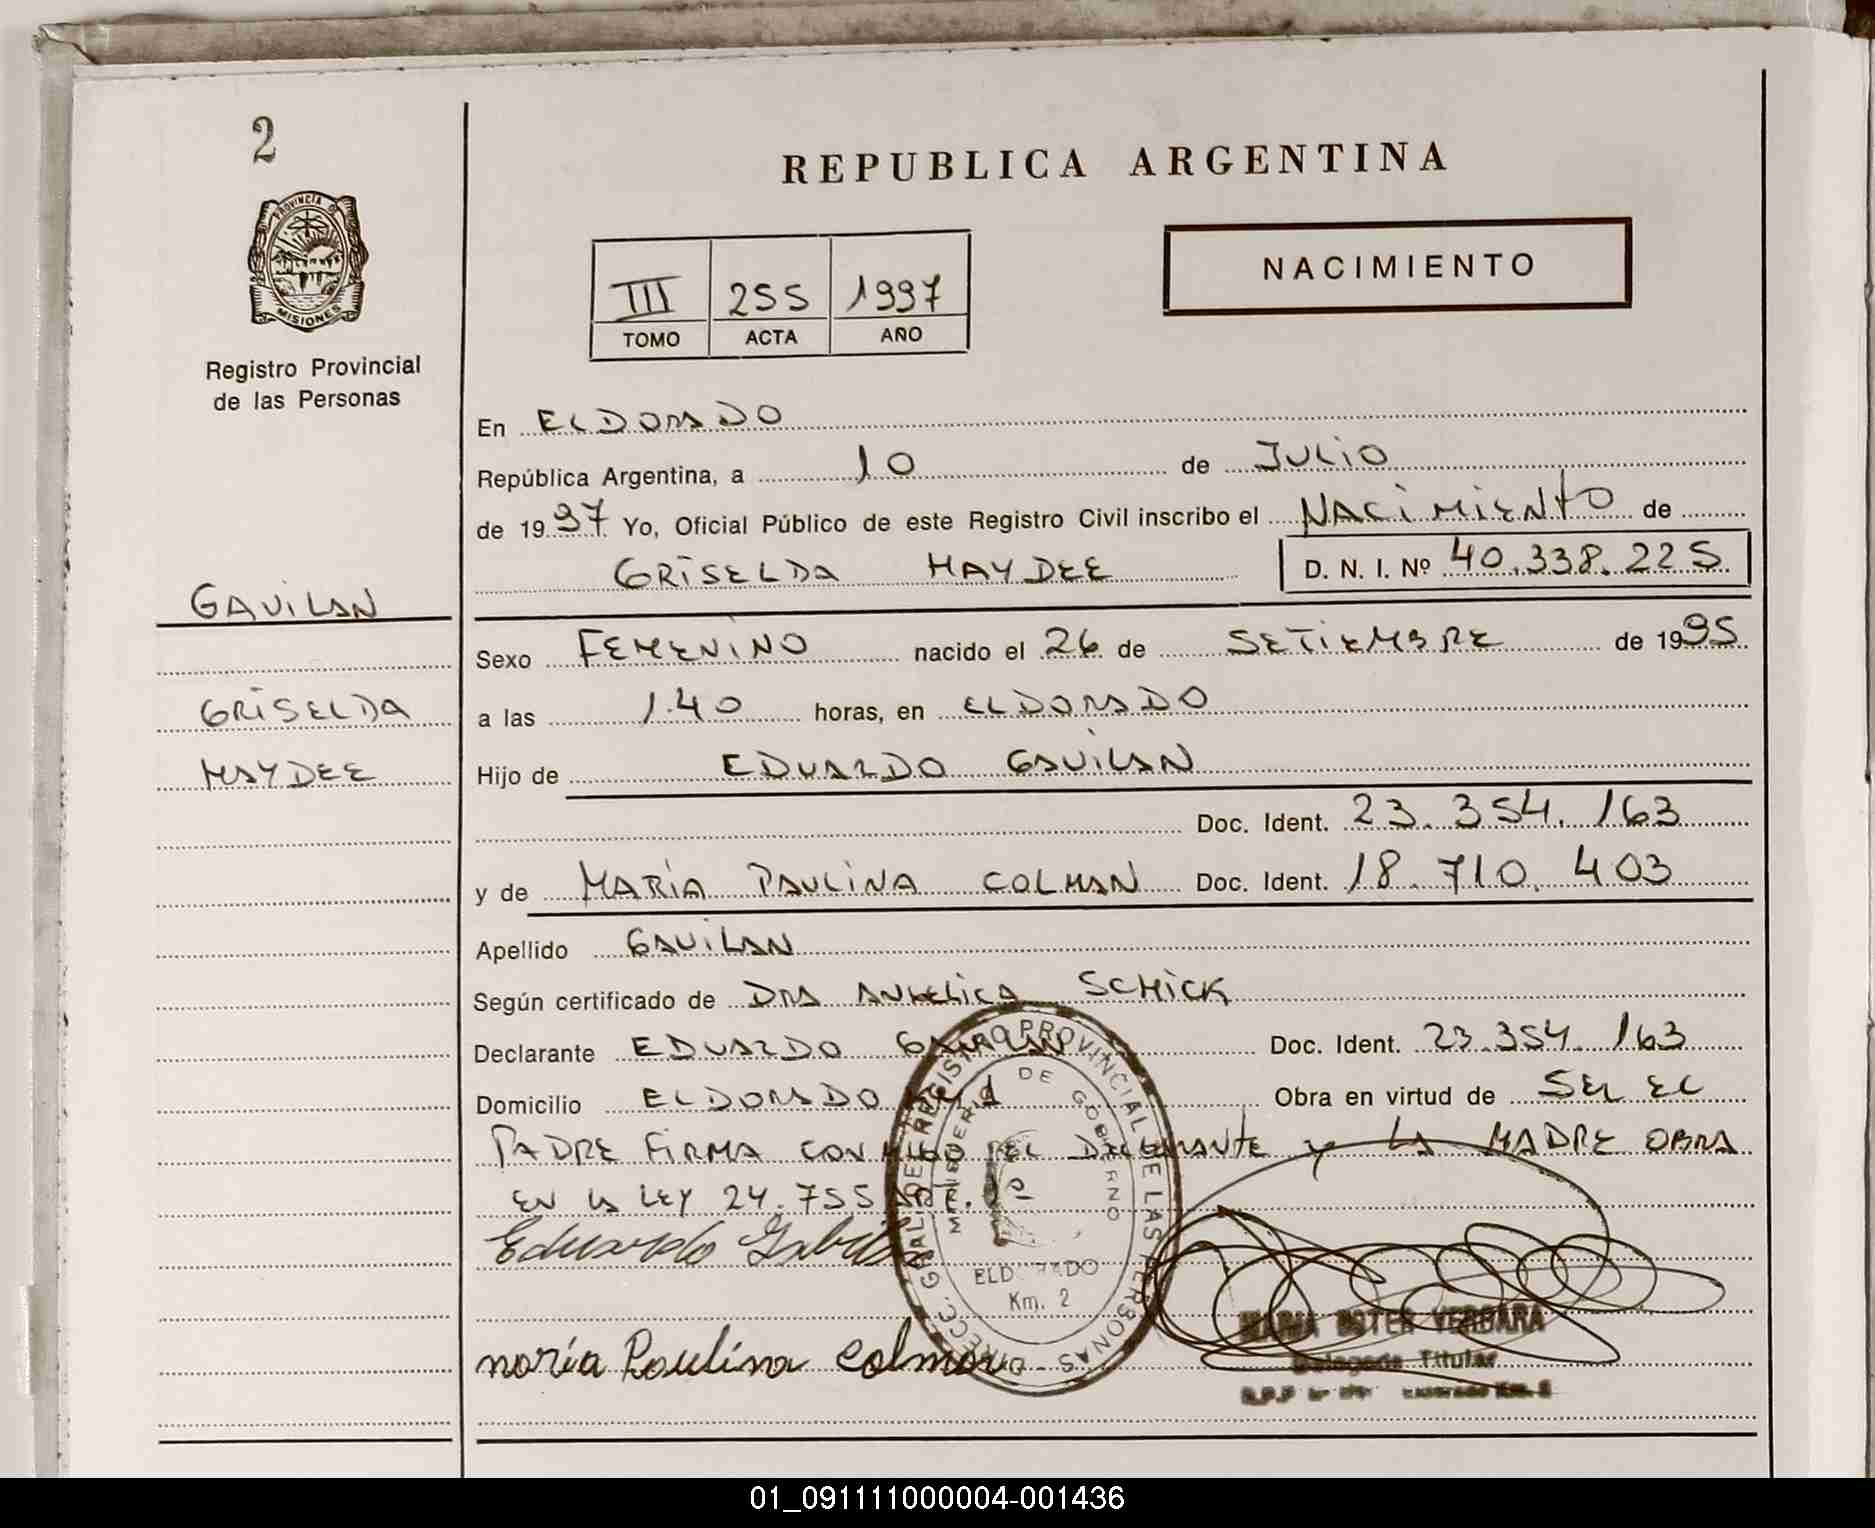 2
PROVINCIA DE
MISIONES
Registro Provincial
de las Personas
GAVILAN
GRISELDA
HAYDEE
REPUBLICA ARGENTINA
III 255 1997
TOMO ACTA AÑO
NACIMIENTO
En ELDORADO
República Argentina, a 10 de JULIO
de 1997 Yo, Oficial Público de este Registro Civil inscribo el NACIMIENTO de
GRISELDA HAYDEE D. N. I. Nº 40.338.225
Sexo FEMENINO nacido el 26 de SETIEMBRE de 1995
a las 1.40 horas, en ELDORADO
Hijo de EDUARDO GAVILAN
Doc. Ident. 23.354.163
y de MARÍA PAULINA COLMAN Doc. Ident. 18.710.403
Apellido GAVILAN
Según certificado de DRA ANGELICA SCHICK
Declarante EDUARDO GAVILAN Doc. Ident. 23.354.163
Domicilio ELDORADO Obra en virtud de SER EL
PADRE FIRMA CON DEL DECLARANTE y LA MADRE OBRA
EN LA LEY 24.755 ART. 1º
Eduardo Gabilan
maría Paulina Colman
DIRECC. GRAL. DE REGISTRO PROVINCIAL DE LAS PERSONAS
MINISTERIO DE GOBIERNO
ELDORADO
Km. 2
MARIA ESTER VERGARA
Delegada Titular
01_091111000004-001436